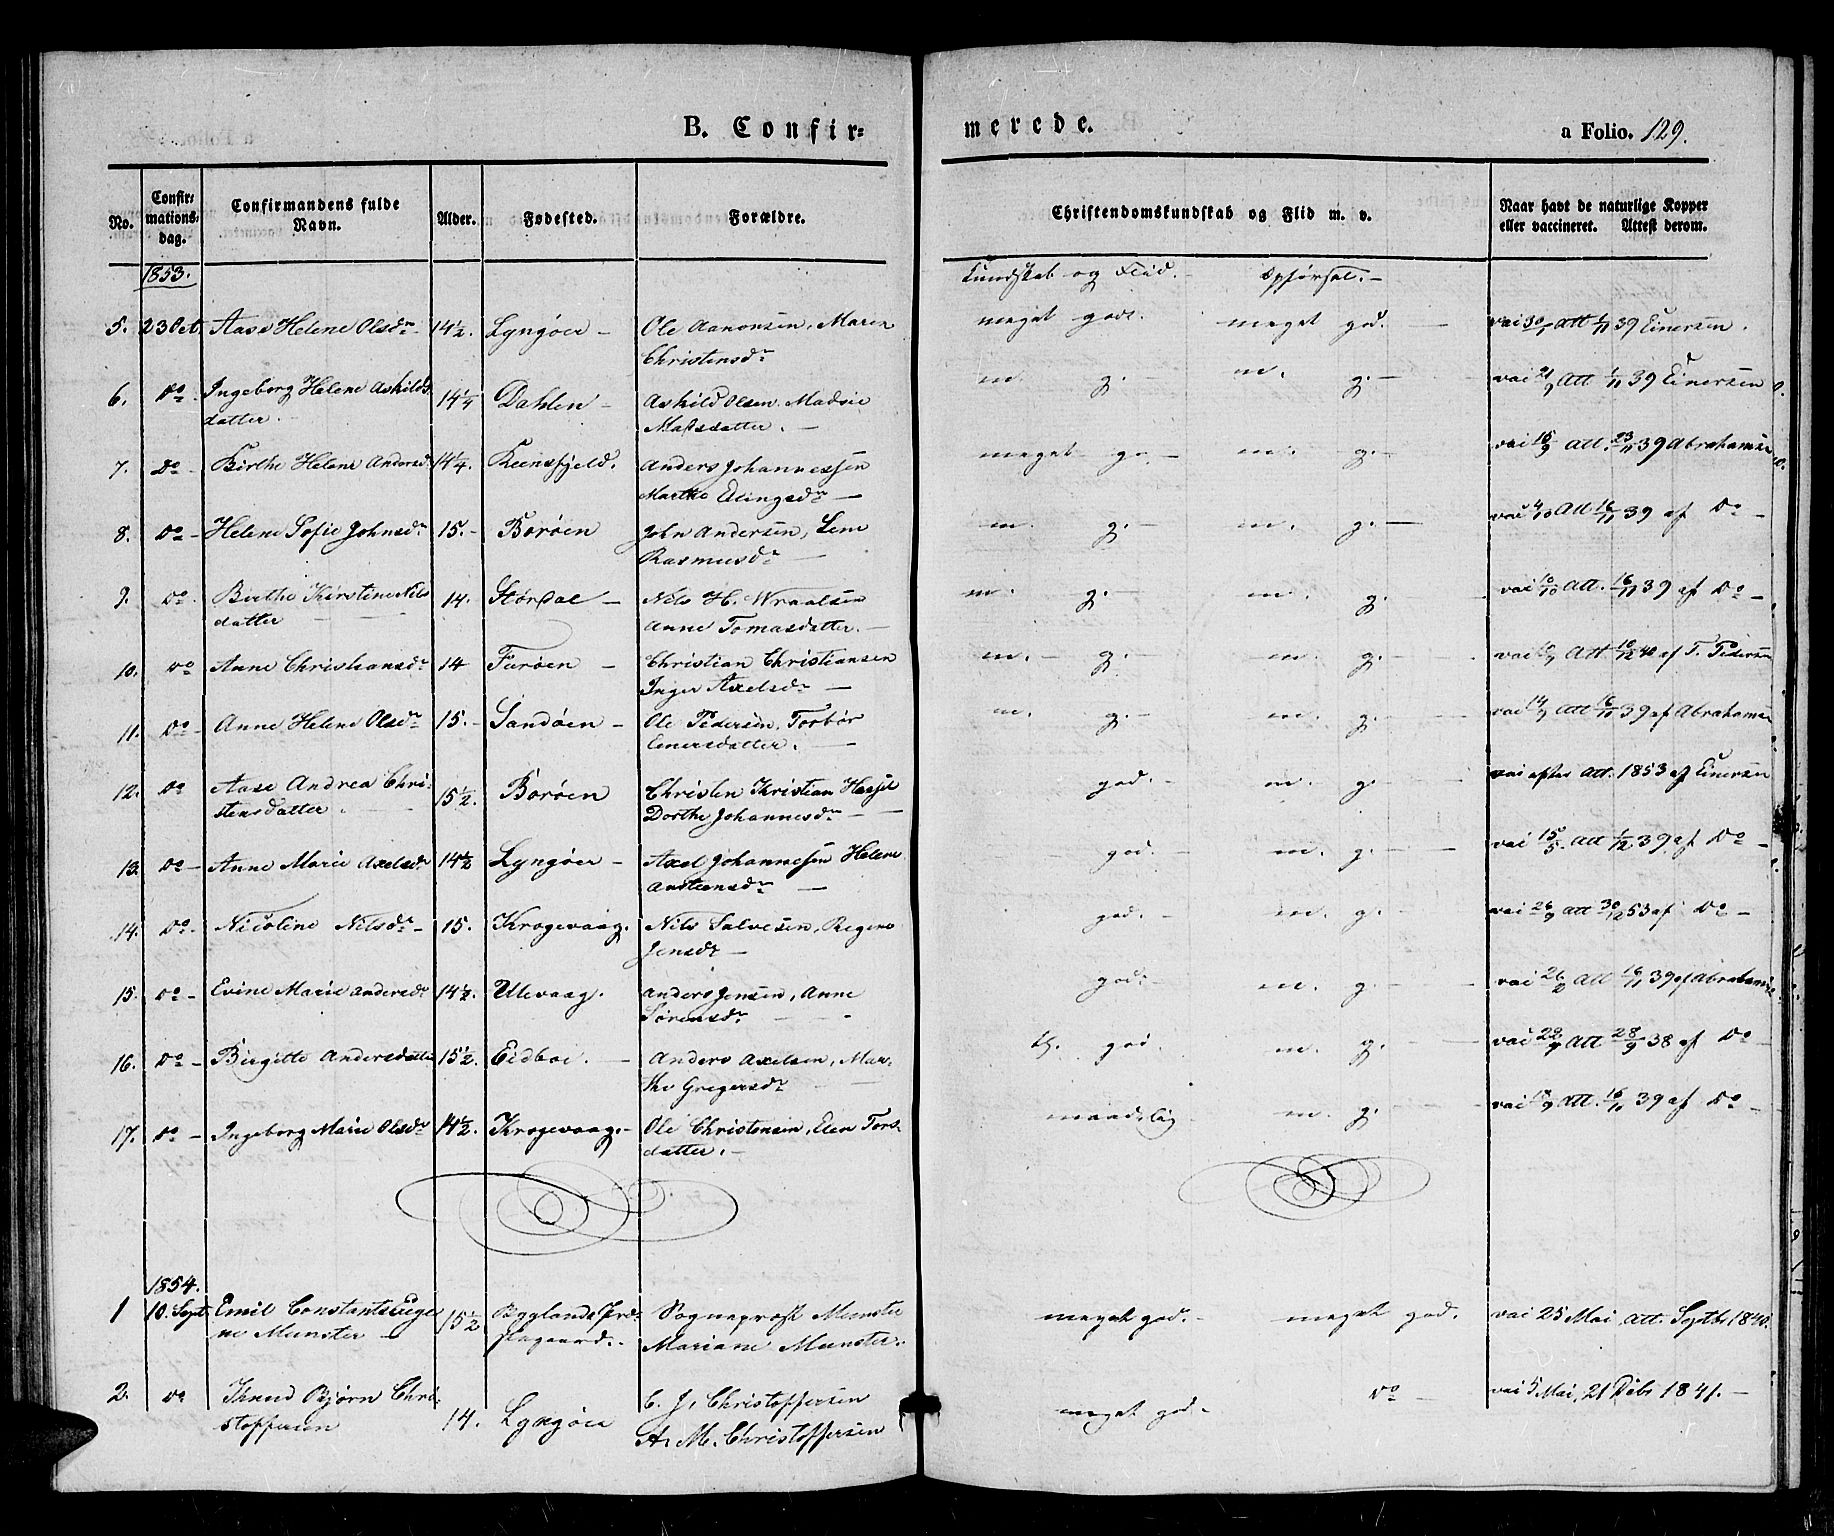 B. Confir=
merede.
a Folio. 129.
No.
Confir=
mations=
dag.
Confirmandens fulde
Navn.
Alder.
Fødested.
Forældre.
Christendomskundskab og Flid m. v.
Naar havt de naturlige Kopper
eller vaccineret. Attest derom.
1853.
Kundskab og Flid. – Opførsel. –
5. 23 Oct. Aase Helene Olsdr 14½. Lyngøer – Ole Aanonsen, Maren
Christensdr –
meget godt. meget god. – vai 30/1 att 1/11 39 Einersen.
6. Do. Ingeborg Helene Askilds
datter. 14¼ Dahlen – Askild Olsen. Madsie
Matsdatter. –
m. g. – m. g. – vai 21/9 Att 1/11 39 Einersen
7. Do – Birthe Helene Andersd 14¼. Keensfjeld. Anders Johannessen
Marthe Elingsdr –
meget go. m. g. – vai 15/9 att. 23/11 39 Abrahamsen
8. Do – Helene Sofie Johnsdr 15. – Borøen John Andersen, Lene
Rasmusdr –
m. g. – m. g. – vai 4/10 Att 16/11 39 af Do –
9. Do. Birthe Kirstine Nils
datter 14. Størdal – Nils H. Wraalsen
Anne Tomasdatter. –
m. g. – m. g. – vai 10/10 att. 16/11 39 af Do –
10. Do Anne Christiansdr 14 Furøen – Christian Christiansen
Inger Axelsdr –
m. – g. – m. g. – vai Att. 10/12 40 af T. Pedersen
11. Do – Anne Helene Olsdr 15. – Sandøen – Ole Pedersen, Torbør
Emersdatter. –
m. g. – m. g. – vai 14/9 att 16/11 39 af Abrahamsen
12. Do Aase Andrea Chri=
stensdatter. 15½. Borøen Christen Kristian Hassel
Dorthe Johannesdr –
god. – m. g. – vai efter att. 1853 af Einersen
13. Do – Anne Marie Axelsdr 14½ Lyngøer – Axel Johannessen Helene
Austeensdr –
god. – m. g. – vai 15/5 Att 1/12 39 af Do –
14. Do – Nicoline Nilsdr – 15. Krogevaag. Nils Salvesen, Regine
Jensdr –
god. – m. g. – vai 26/9 att 30/12 53 af Do –
15. Do – Evine Marie Andersdr 14½. Ulevaag. Anders Jensen, Anne
Sørensdr –
god. m. g. – vai 26/2 Att 16/11 39 af Abrahamsen
16. Do – Birgitte Andersdatter 15½. Eidboe. – Anders Axelsen, Mar=
the Gregersdr
tg. god. m. g. – vai 22/9 Att 28/9 38 af Do –
17. Do – Ingeborg Marie Olsdr 14½. Krogevaag. – Ole Christensen, Elen Tors=
datter. –
maadelig m. g. – vai att. 16/11 39 af Do –
1854.
1 10. Sept. Emil Constants Euge
ne Munster – 15½ Bygland Præ=
stegaard. – Sogneprest Munster
Mariane Munster.
meget god. – meget god. vai 25 Mai, att. Septb. 1840.
2. Do Knud Bjørn Chri=
stoffersen 14. Lyngøer C. J. Christoffersen
A. M. Christoffersen
meget god. – Do – vai 5 Mai, 21 Debr 1841. –